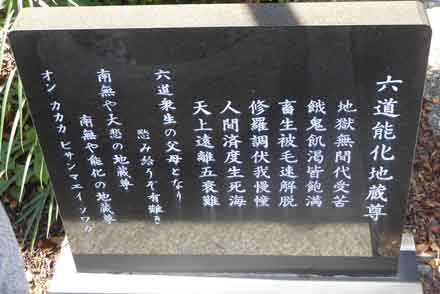 六道能化地蔵尊
地獄無間代受苦
餓鬼飢渇皆飽満
畜生被毛速解脱
修羅調伏我慢憧
人間済度生死海
天上遠離五衰難
六道衆生の父母となり
愍み給うぞ有難き
南無や大悲の地蔵尊
南無や能化の地蔵尊
オン カカカ ビサンマエイ ソワカ